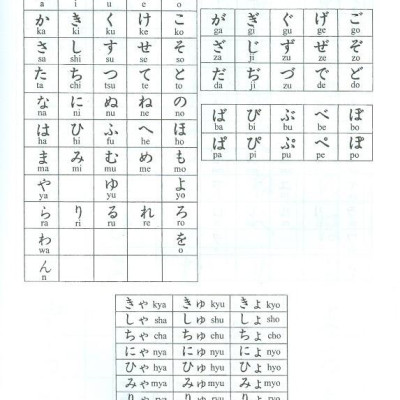 a i u e o
か き く け こ
ka ki ku ke ko
さ し す せ そ
sa shi su se so
た ち つ て と
ta chi tsu te to
な に ぬ ね の
na ni nu ne no
は ひ ふ へ ほ
ha hi fu he ho
ま み む め も
ma mi mu me mo
や ゆ よ
ya yu yo
ら り る れ ろ
ra ri ru re ro
わ を
wa o
ん
n
が ぎ ぐ げ ご
ga gi gu ge go
ざ じ ず ぜ ぞ
za ji zu ze zo
だ ぢ づ で ど
da ji zu de do
ば び ぶ べ ぼ
ba bi bu be bo
ぱ ぴ ぷ ぺ ぽ
pa pi pu pe po
きゃ kya きゅ kyu きょ kyo
しゃ sha しゅ shu しょ sho
ちゃ cha ちゅ chu ちょ cho
にゃ nya にゅ nyu にょ nyo
ひゃ hya ひゅ hyu ひょ hyo
みゃ mya みゅ myu みょ myo